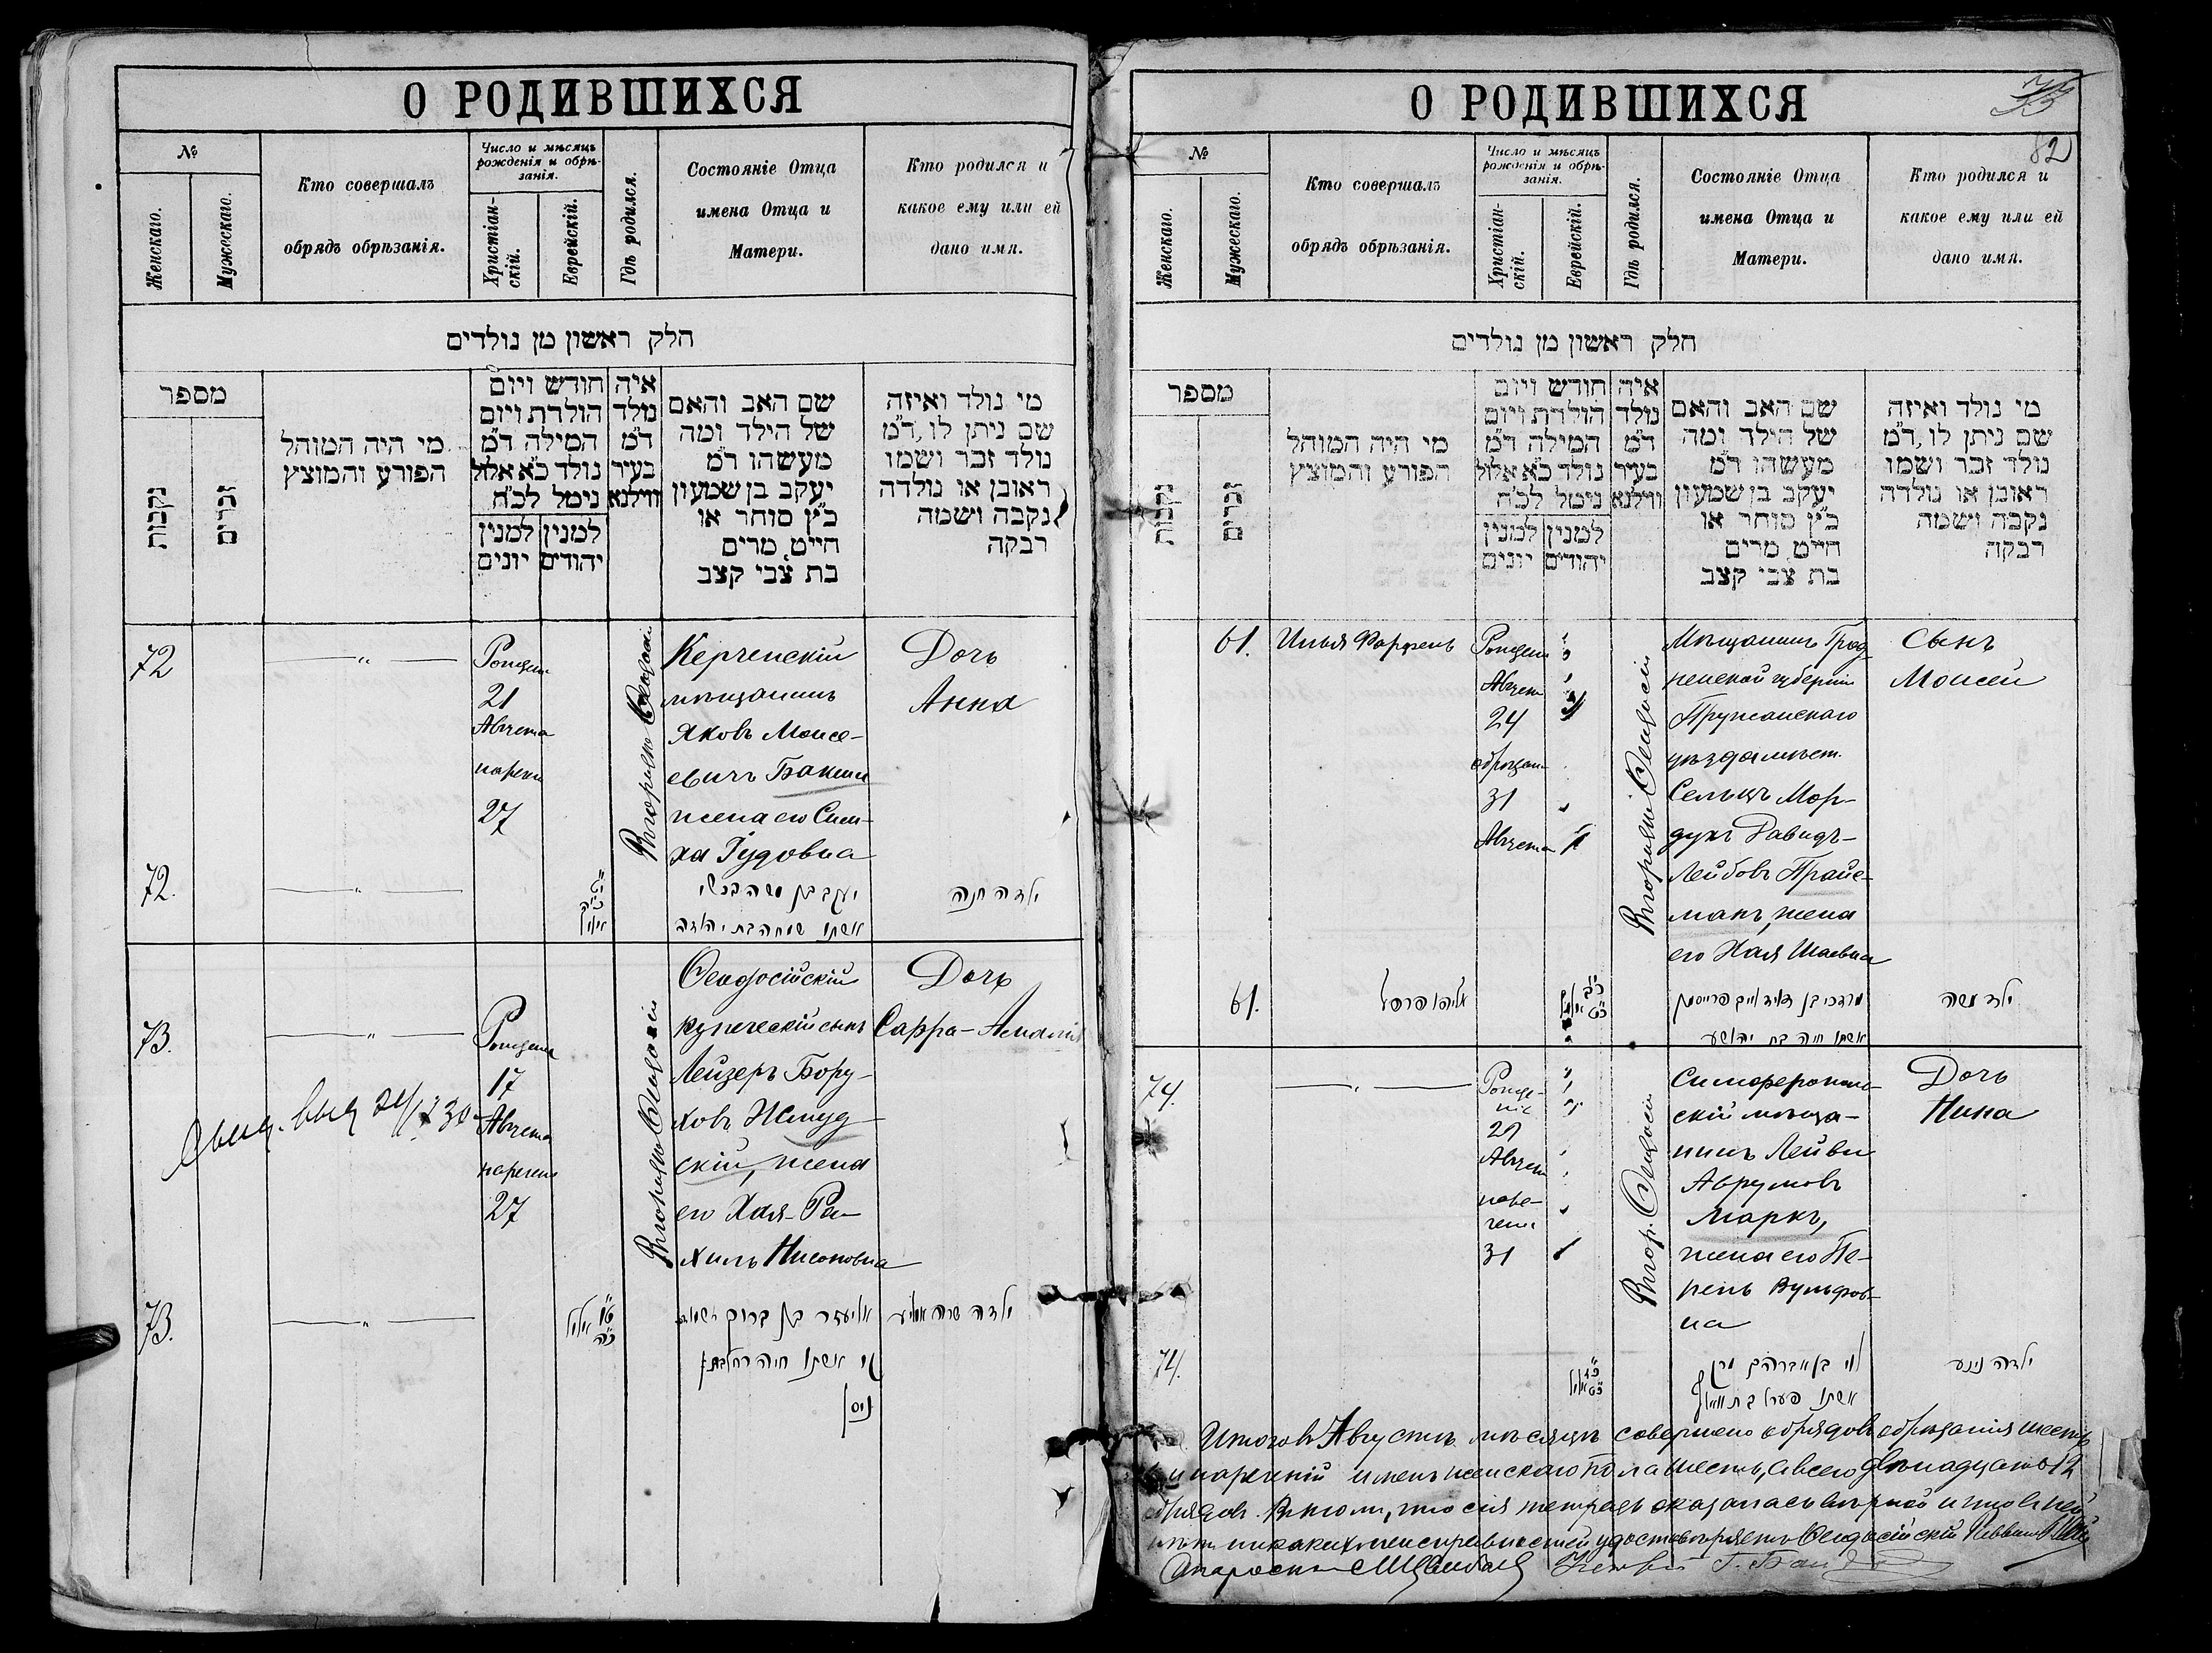 О РОДИВШИХСЯ
№
Женскаго.
Мужескаго.
Кто совершалъ
обрядъ обрѣзанія.
Число и мѣсяцъ
рожденія и обрѣ-
занія.
Христіан-
скій.
Еврейскій.
Гдѣ родился.
Состояніе Отца
имена Отца и
Матери.
Кто родился и
какое ему или ей
дано имя.
חלק ראשון מן נולדים
מספר
נקבות
זכרים
מי היה המוהל
הפורע והמוצץ
חודש ויום
הולדת ויום
המילה ד״מ
נולד כ״א אלול
נימל לכ״ח
למנין למנין
יהודים יונים
איה
נולד
ד״מ
בעיר
ווילנא
שם האב והאם
של הילד ומה
מעשהו ד״מ
יעקב בן שמעון
כ״ץ סוחר או
חייט מרים
בת צבי קצב
מי נולד ואיזה
שם ניתן לו ד״מ
נולד זכר ושמו
ראובן או נולדה
נקבה ושמה
רבקה
72
21
Августа
27
Керченскій
мѣщанинъ
Яковъ Моисе-
евичъ Бакши
жена его Сим-
ха Іудовна
Дочь
Анна
72.
יעקב בן משה בכשי
אשתו שמחה בת יהודה
ילדה חנה
73.
17
Августа
27
Ѳеодосійскій
купеческій сынъ
Лейзеръ Бору-
ховъ Жмуд-
скій, жена
его Хая-Ра-
хиль Нисоновна
Дочь
Сарра-Амалія
73.
אליעזר בן ברוך
אשתו חיה רחל בת
ניסן
ילדה שרה
О РОДИВШИХСЯ
82
№
Женскаго.
Мужескаго.
Кто совершалъ
обрядъ обрѣзанія.
Число и мѣсяцъ
рожденія и обрѣ-
занія.
Христіан-
скій.
Еврейскій.
Гдѣ родился.
Состояніе Отца
имена Отца и
Матери.
Кто родился и
какое ему или ей
дано имя.
חלק ראשון מן נולדים
מספר
נקבות
זכרים
מי היה המוהל
הפורע והמוצץ
חודש ויום
הולדת ויום
המילה ד״מ
נולד כ״א אלול
נימל לכ״ח
למנין למנין
יהודים יונים
איה
נולד
ד״מ
בעיר
ווילנא
שם האב והאם
של הילד ומה
מעשהו ד״מ
יעקב בן שמעון
כ״ץ סוחר או
חייט מרים
בת צבי קצב
מי נולד ואיזה
שם ניתן לו ד״מ
נולד זכר ושמו
ראובן או נולדה
נקבה ושמה
רבקה
61.
Илья Фарфель
24
31
Августа
Мѣщанинъ Грод-
ненской губерніи
Пружанскаго
уѣзда мѣст.
Сельцъ Мор-
духъ Давидъ-
Лейбовъ Прайс-
манъ, жена
его Хая Шаевна
Сынъ
Моисей
61.
אליהו פרפל
מרדכי בן דוד לייב פרייסמן
אשתו חיה בת יהושע
ילד משה
74.
29
31
Симферополь-
скій мѣща-
нинъ Лейви
Аврумовъ
Маркъ,
жена его Пе-
рель Вульфов-
на
Дочь
Нина
74.
לוי בן אברהם מרק
אשתו פערל בת וואלף
ילדה נינע
Итого въ Августѣ мѣсяцѣ совершено обрядовъ обрѣзанія шесть
и нареченій именъ женскаго пола шесть, а всего двѣнадцать 12
обрядовъ. Въ томъ, что сія тетрадь оказалась вѣрной и что въ ней
нѣтъ никакихъ неисправностей удостовѣряетъ Ѳеодосійскій Раввинъ